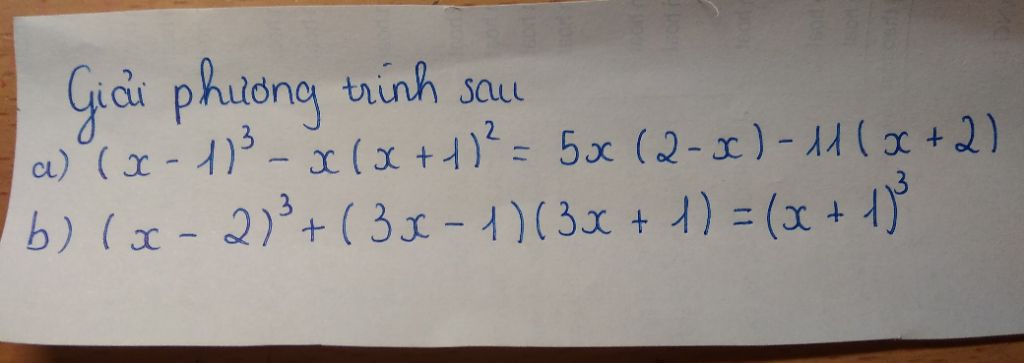 Giải phương trình sau
a) (x - 1)³ - x(x + 1)² = 5x(2 - x) - 11(x + 2)
b) (x - 2)³ + (3x - 1)(3x + 1) = (x + 1)³